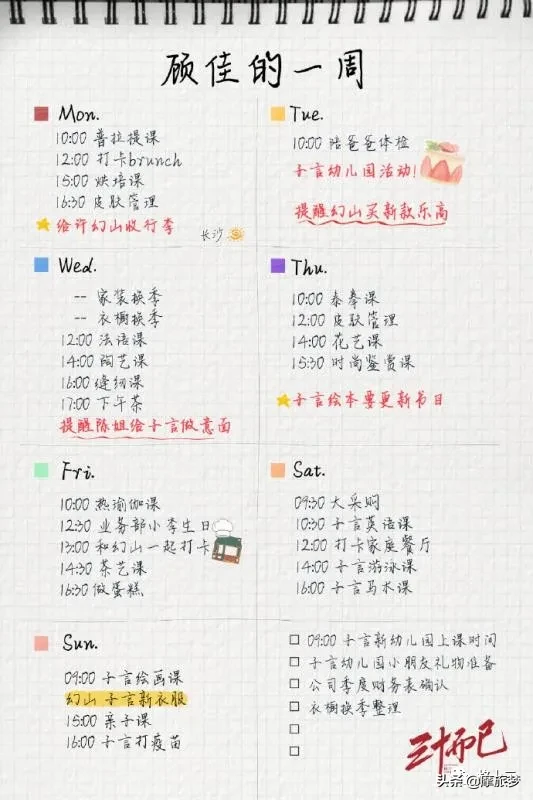 顾佳的一周
Mon.
10:00 普拉提课
12:00 打卡brunch
15:00 烘培课
16:30 皮肤管理
给许幻山收行李
长沙
Tue.
10:00 陪爸爸体检
子言幼儿园活动!
提醒幻山买新款乐高
Wed.
-- 家装换季
-- 衣橱换季
12:00 法语课
14:00 陶艺课
16:00 缝纫课
17:00 下午茶
提醒陈姐给子言做意面
Thu.
10:00 泰拳课
12:00 皮肤管理
14:00 花艺课
15:30 时尚鉴赏课
子言绘本要更新书目
Fri.
10:00 热瑜伽课
12:30 业务部小李生日
13:00 和幻山一起打卡
14:30 茶艺课
16:30 做蛋糕
Sat.
09:30 大采购
10:30 子言英语课
12:00 打卡家庭餐厅
14:00 子言游泳课
16:00 子言马术课
Sun.
09:00 子言绘画课
幻山 子言新衣服
15:00 亲子课
16:00 子言打疫苗
09:00 子言新幼儿园上课时间
子言幼儿园小朋友礼物准备
公司季度财务表确认
衣橱换季整理
三十而已
头条 @摩旅梦